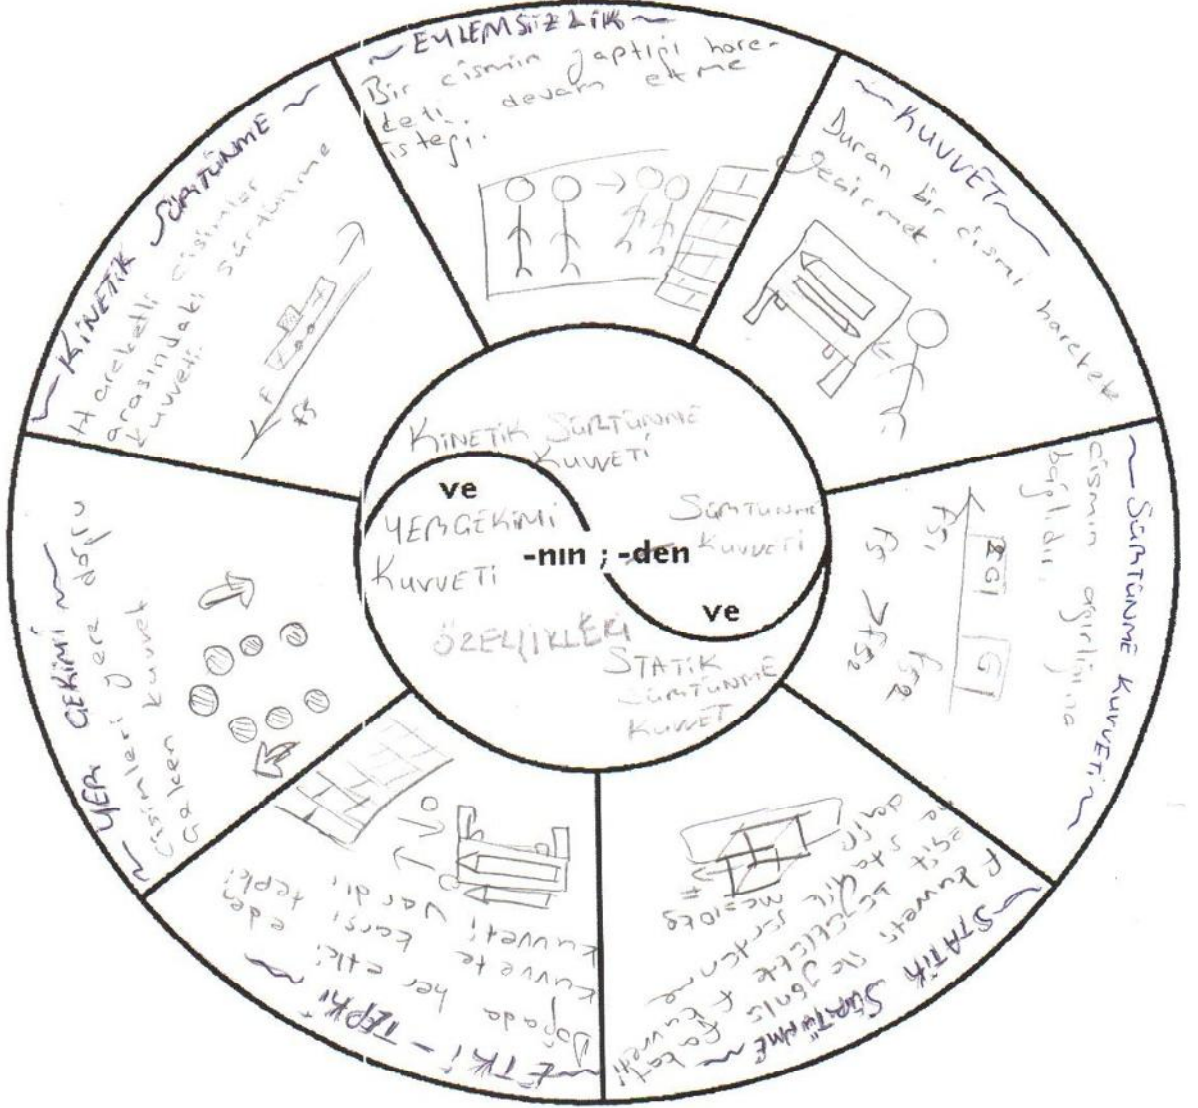 ~ EYLEMSİZLİK ~
Bir cismin yaptığı hare-
deti devam etme
isteği.
~ KUVVET ~
Duran bir cismi harekete
geçirmek.
~ SÜRTÜNME KUVVETİ ~
cismin ağırlığına
bağlıdır.
2G1
G1
fs1
fs2
fs > fs2
~ STATİK SÜRTÜNME ~
F kuvveti
statik sürtünme kuvveti
m=10kg
~ ETKİ - TEPKİ ~
Doğada her etki eden
kuvvete karşı tepki
kuvveti vardır
~ YER ÇEKİMİ ~
Cisimleri yere doğru
çeken kuvvet
~ KİNETİK SÜRTÜNME ~
Hareketli cisimler
arasındaki sürtünme
kuvveti.
F
fs
KİNETİK SÜRTÜNME
KUVVETİ
ve
YERÇEKİMİ
KUVVETİ
-nın ; -den
SÜRTÜNME
KUVVETİ
ve
STATİK
SÜRTÜNME
KUVVET
ÖZELLİKLERİ